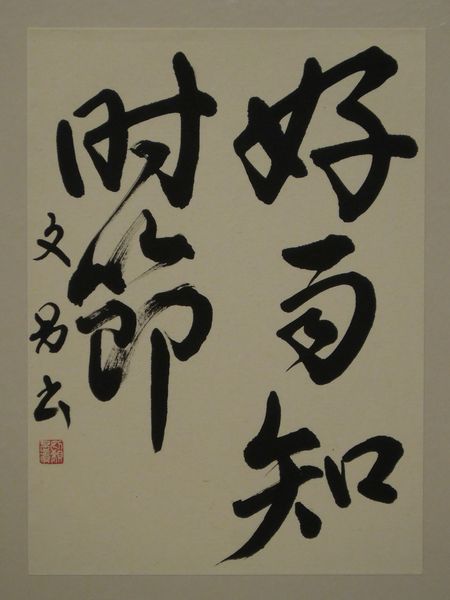 好雨知
时節
文男书